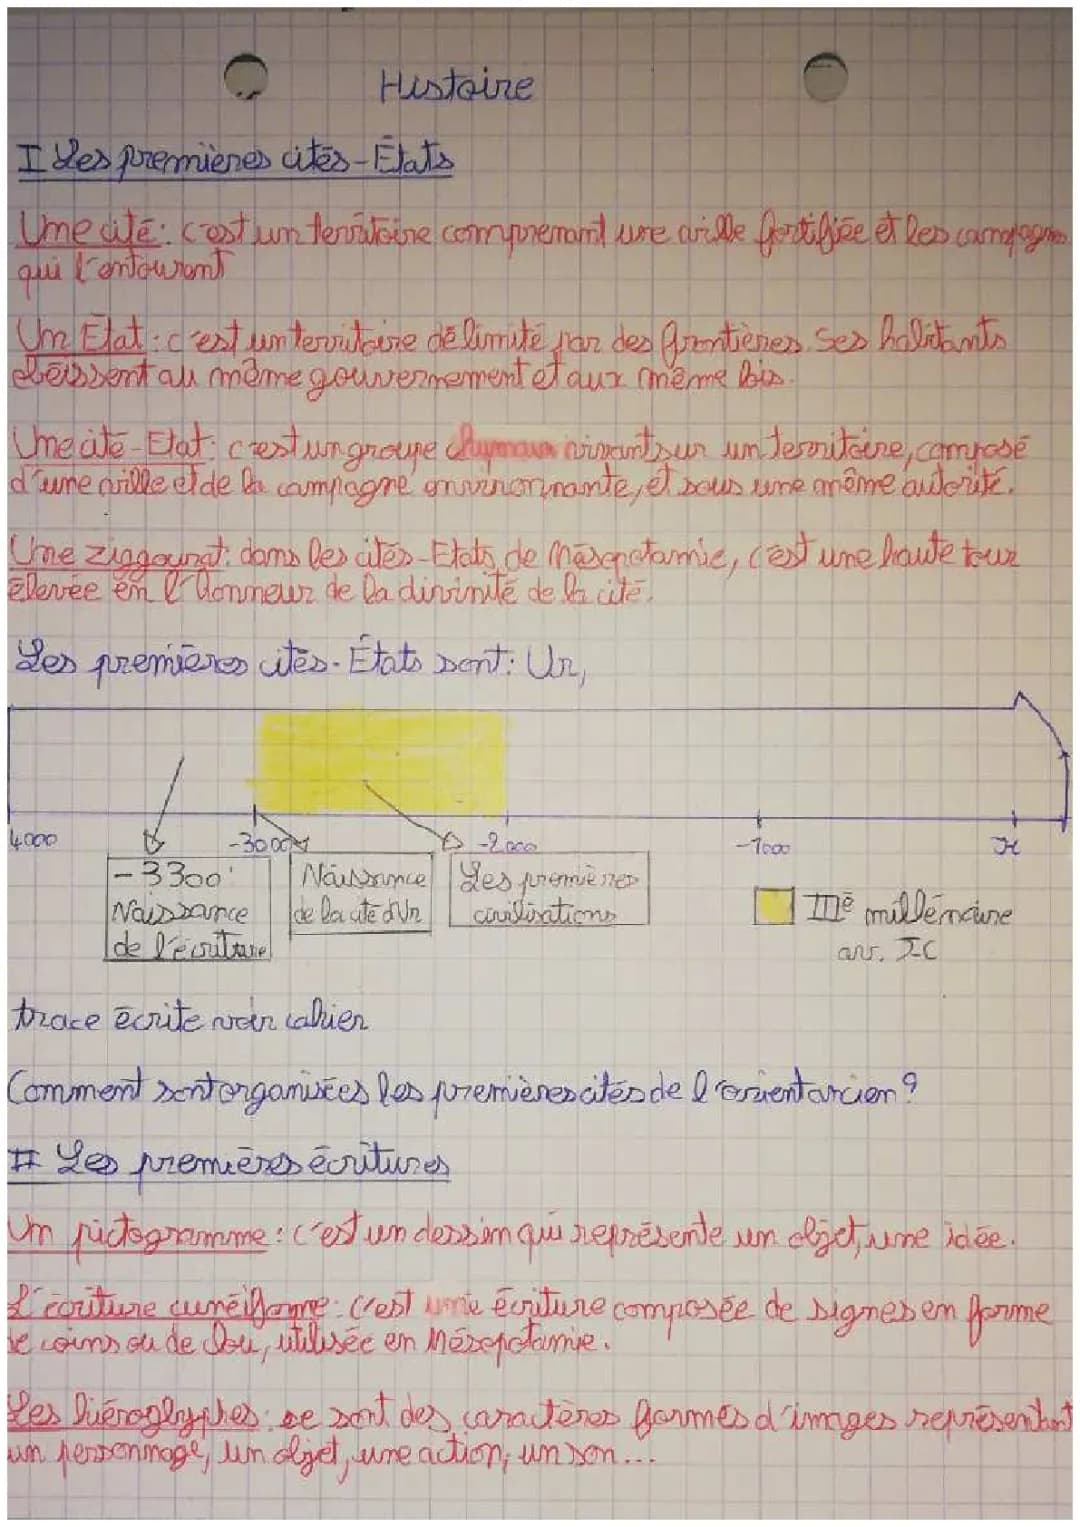 Histoire
I Les premières cités-États
Une cité: c'est un territoire comprenant une ville fortifiée et les campagnes
qui l'entourent
Un État: c'est un territoire délimité par des frontières. Ses habitants
obéissent au même gouvernement et aux même lois.
Une cité-Etat: c'est un groupe humain vivant sur un territoire, composé
d'une ville et de la campagne environnante, et sous une même autorité.
Une ziggourat: dans les cités-Etats de Mésopotamie, c'est une haute tour
élevée en l'honneur de la divinité de la cité.
Les premières cités-États sont: Ur,
4000
-3000
-2000
-1000
JC
-3300
Naissance
de l'écriture
Naissance
de la cité d'Ur
Les premières
civilisations
IIIe millénaire
av. JC
trace écrite voir cahier
Comment sont organisées les premières cités de l'orient ancien?
II Les premières écritures
Un pictogramme: c'est un dessin qui représente un objet, une idée.
L'écriture cunéiforme: c'est une écriture composée de signes en forme
de coins ou de clou, utilisée en Mésopotamie.
Les hiéroglyphes: se sont des caractères formés d'images représentant
un personnage, un objet, une action, un son...